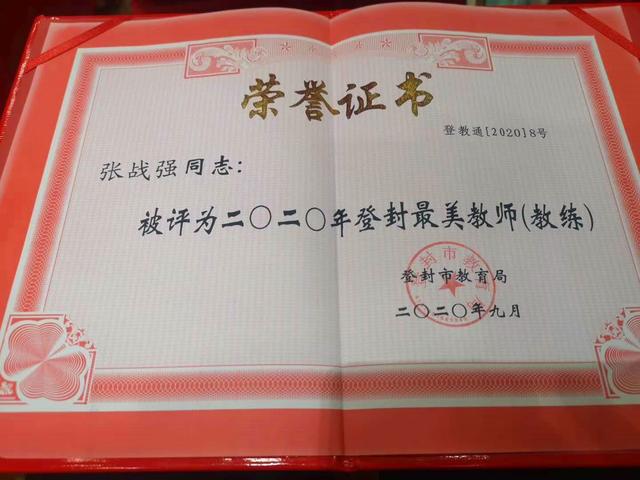 荣誉证书
登教通[2020]8号
张战强同志：
被评为二〇二〇年登封最美教师(教练)
登封市教育局
二〇二〇年九月